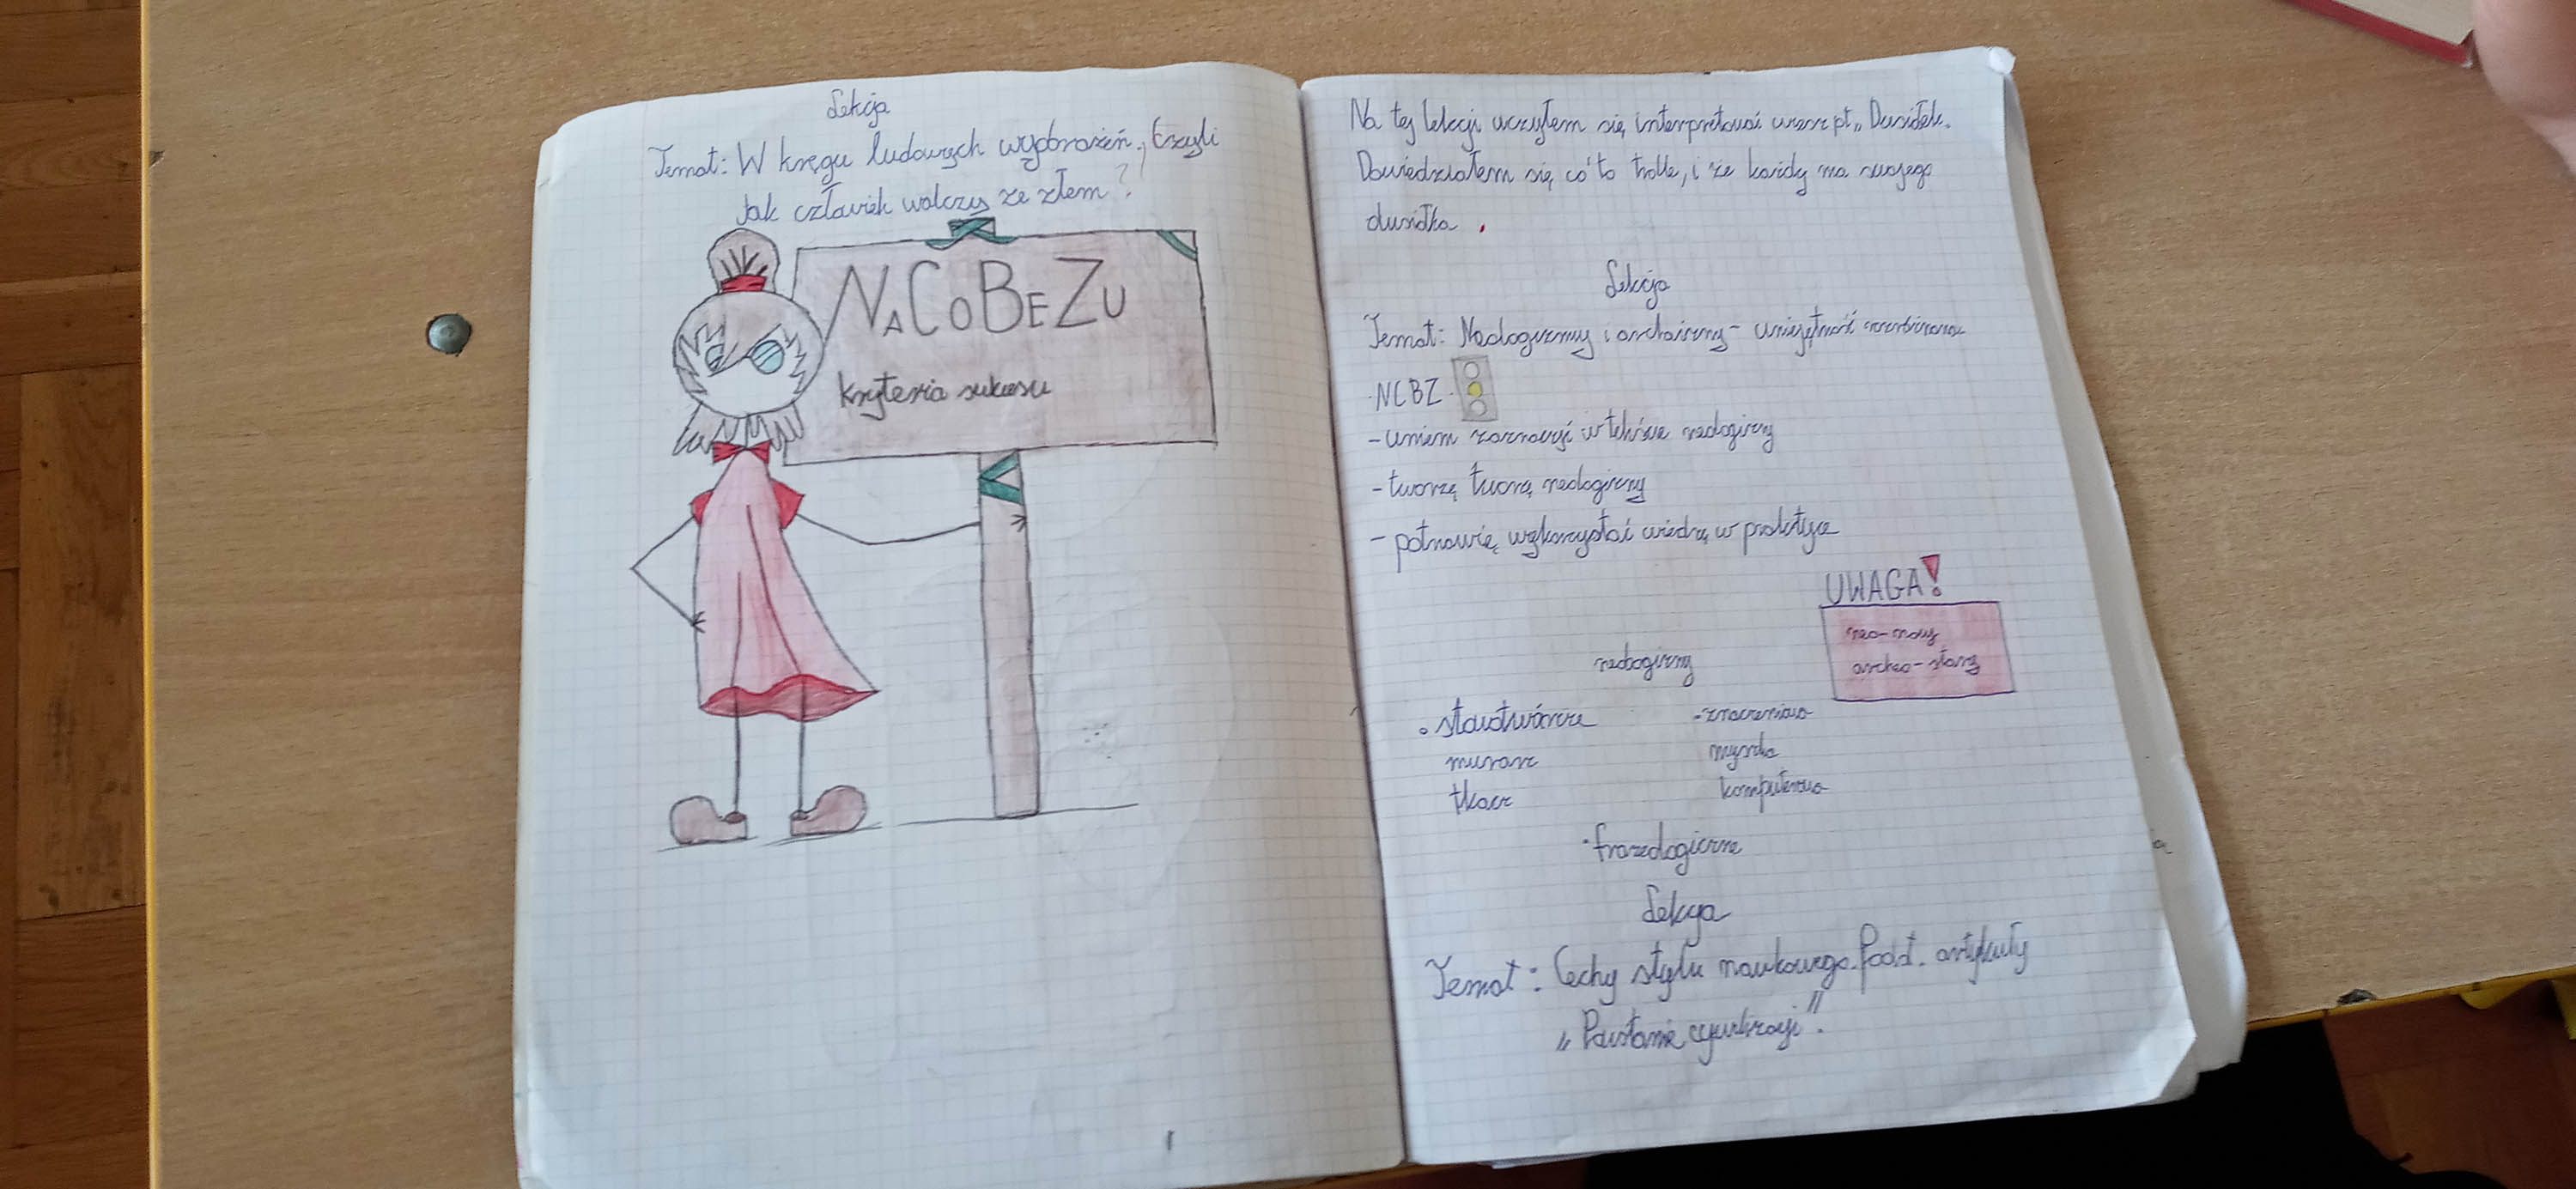 Lekcja
Temat: W kręgu ludowych wyobrażeń, czyli
jak człowiek walczy ze złem?
NaCoBeZu
kryteria sukcesu
Na tej lekcji uczyłem się interpretować wiersz pt. „Dusiołek.
Dowiedziałem się co to trolle, i że każdy ma swojego
dusiołka.
Lekcja
Temat: Neologizmy i archaizmy - umiejętność
NCBZ
- umiem zaznaczyć w tekście neologizmy
- tworzę neologizmy
- potrafię wykorzystać wiedzę w praktyce
UWAGA!
neo- nowy
archeo- stary
neologizmy
słowotwórcze
- znaczeniowe
murarz
myszka
tkacz
komputerowa
frazeologiczne
Lekcja
Temat: Cechy stylu naukowego. Podst. artykuły
„Powstanie cywilizacji".